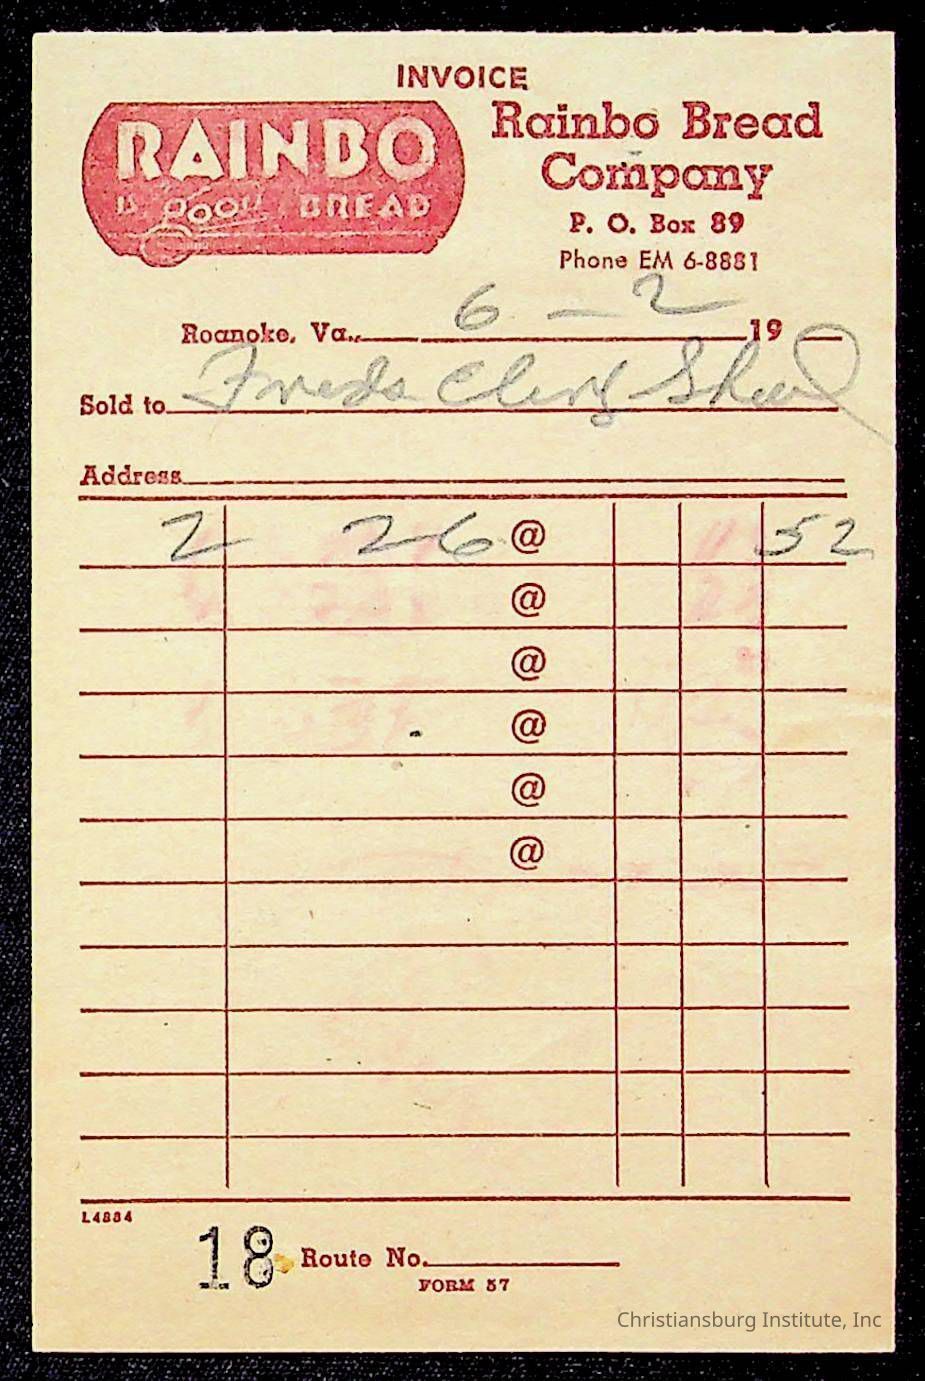 INVOICE
RAINBO
IS good BREAD
Rainbo Bread
Company
P. O. Box 89
Phone EM 6-8881
Roanoke, Va. 6 - 2 19
Sold to Freds
Address
2 26 @ 52
@
@
@
@
@
L4884
18 Route No.
FORM 57
Christiansburg Institute, Inc